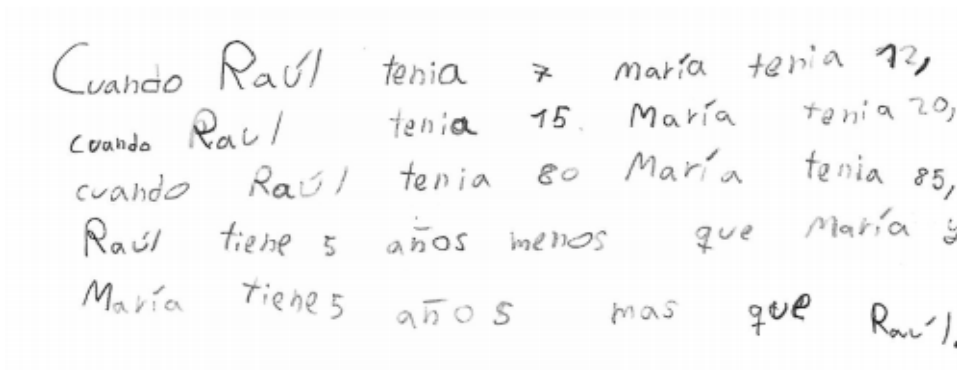 Cuando Raúl tenia 7 maría tenia 12,
cuando Raul tenia 15. María tenia 20,
cuando Raúl tenia 80 María tenia 85,
Raúl tiene 5 años menos que María y
María tiene 5 años mas que Raúl.